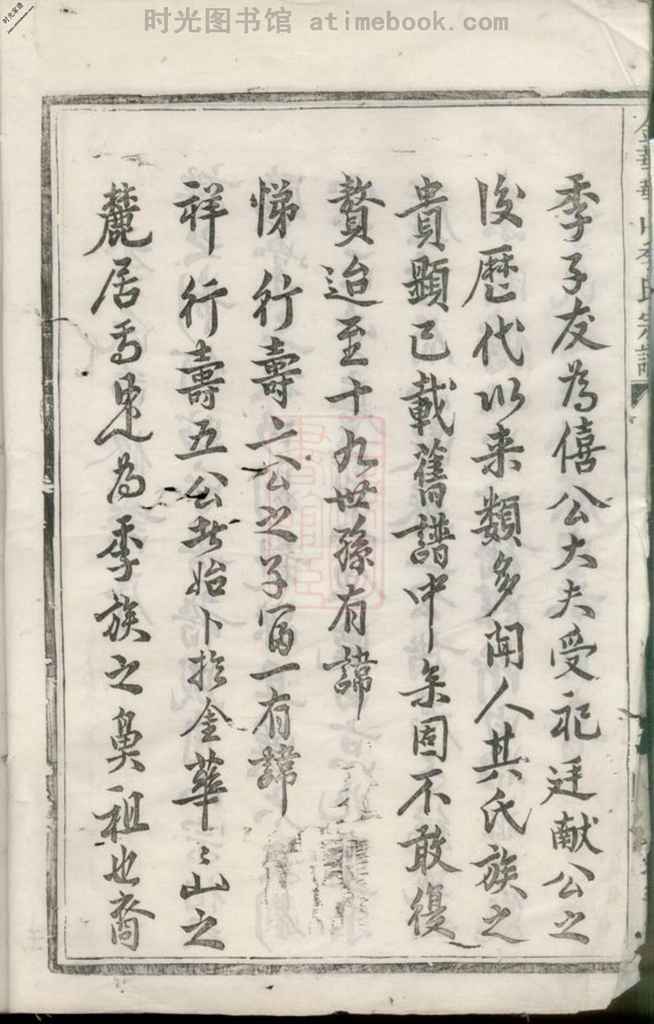 时光图书馆 atimebook.com
时光家谱
季氏宗譜
季子友為僖公大夫受祀廷献公之
後歷代以来類多聞人其氏族之
貴顯已載舊譜中余固不敢復
贅迨至十九世孫有諱
悌行壽二公之子一有諱
祥行壽五公者始卜於金華〻山之
麓居焉是為季族之鼻祖也裔